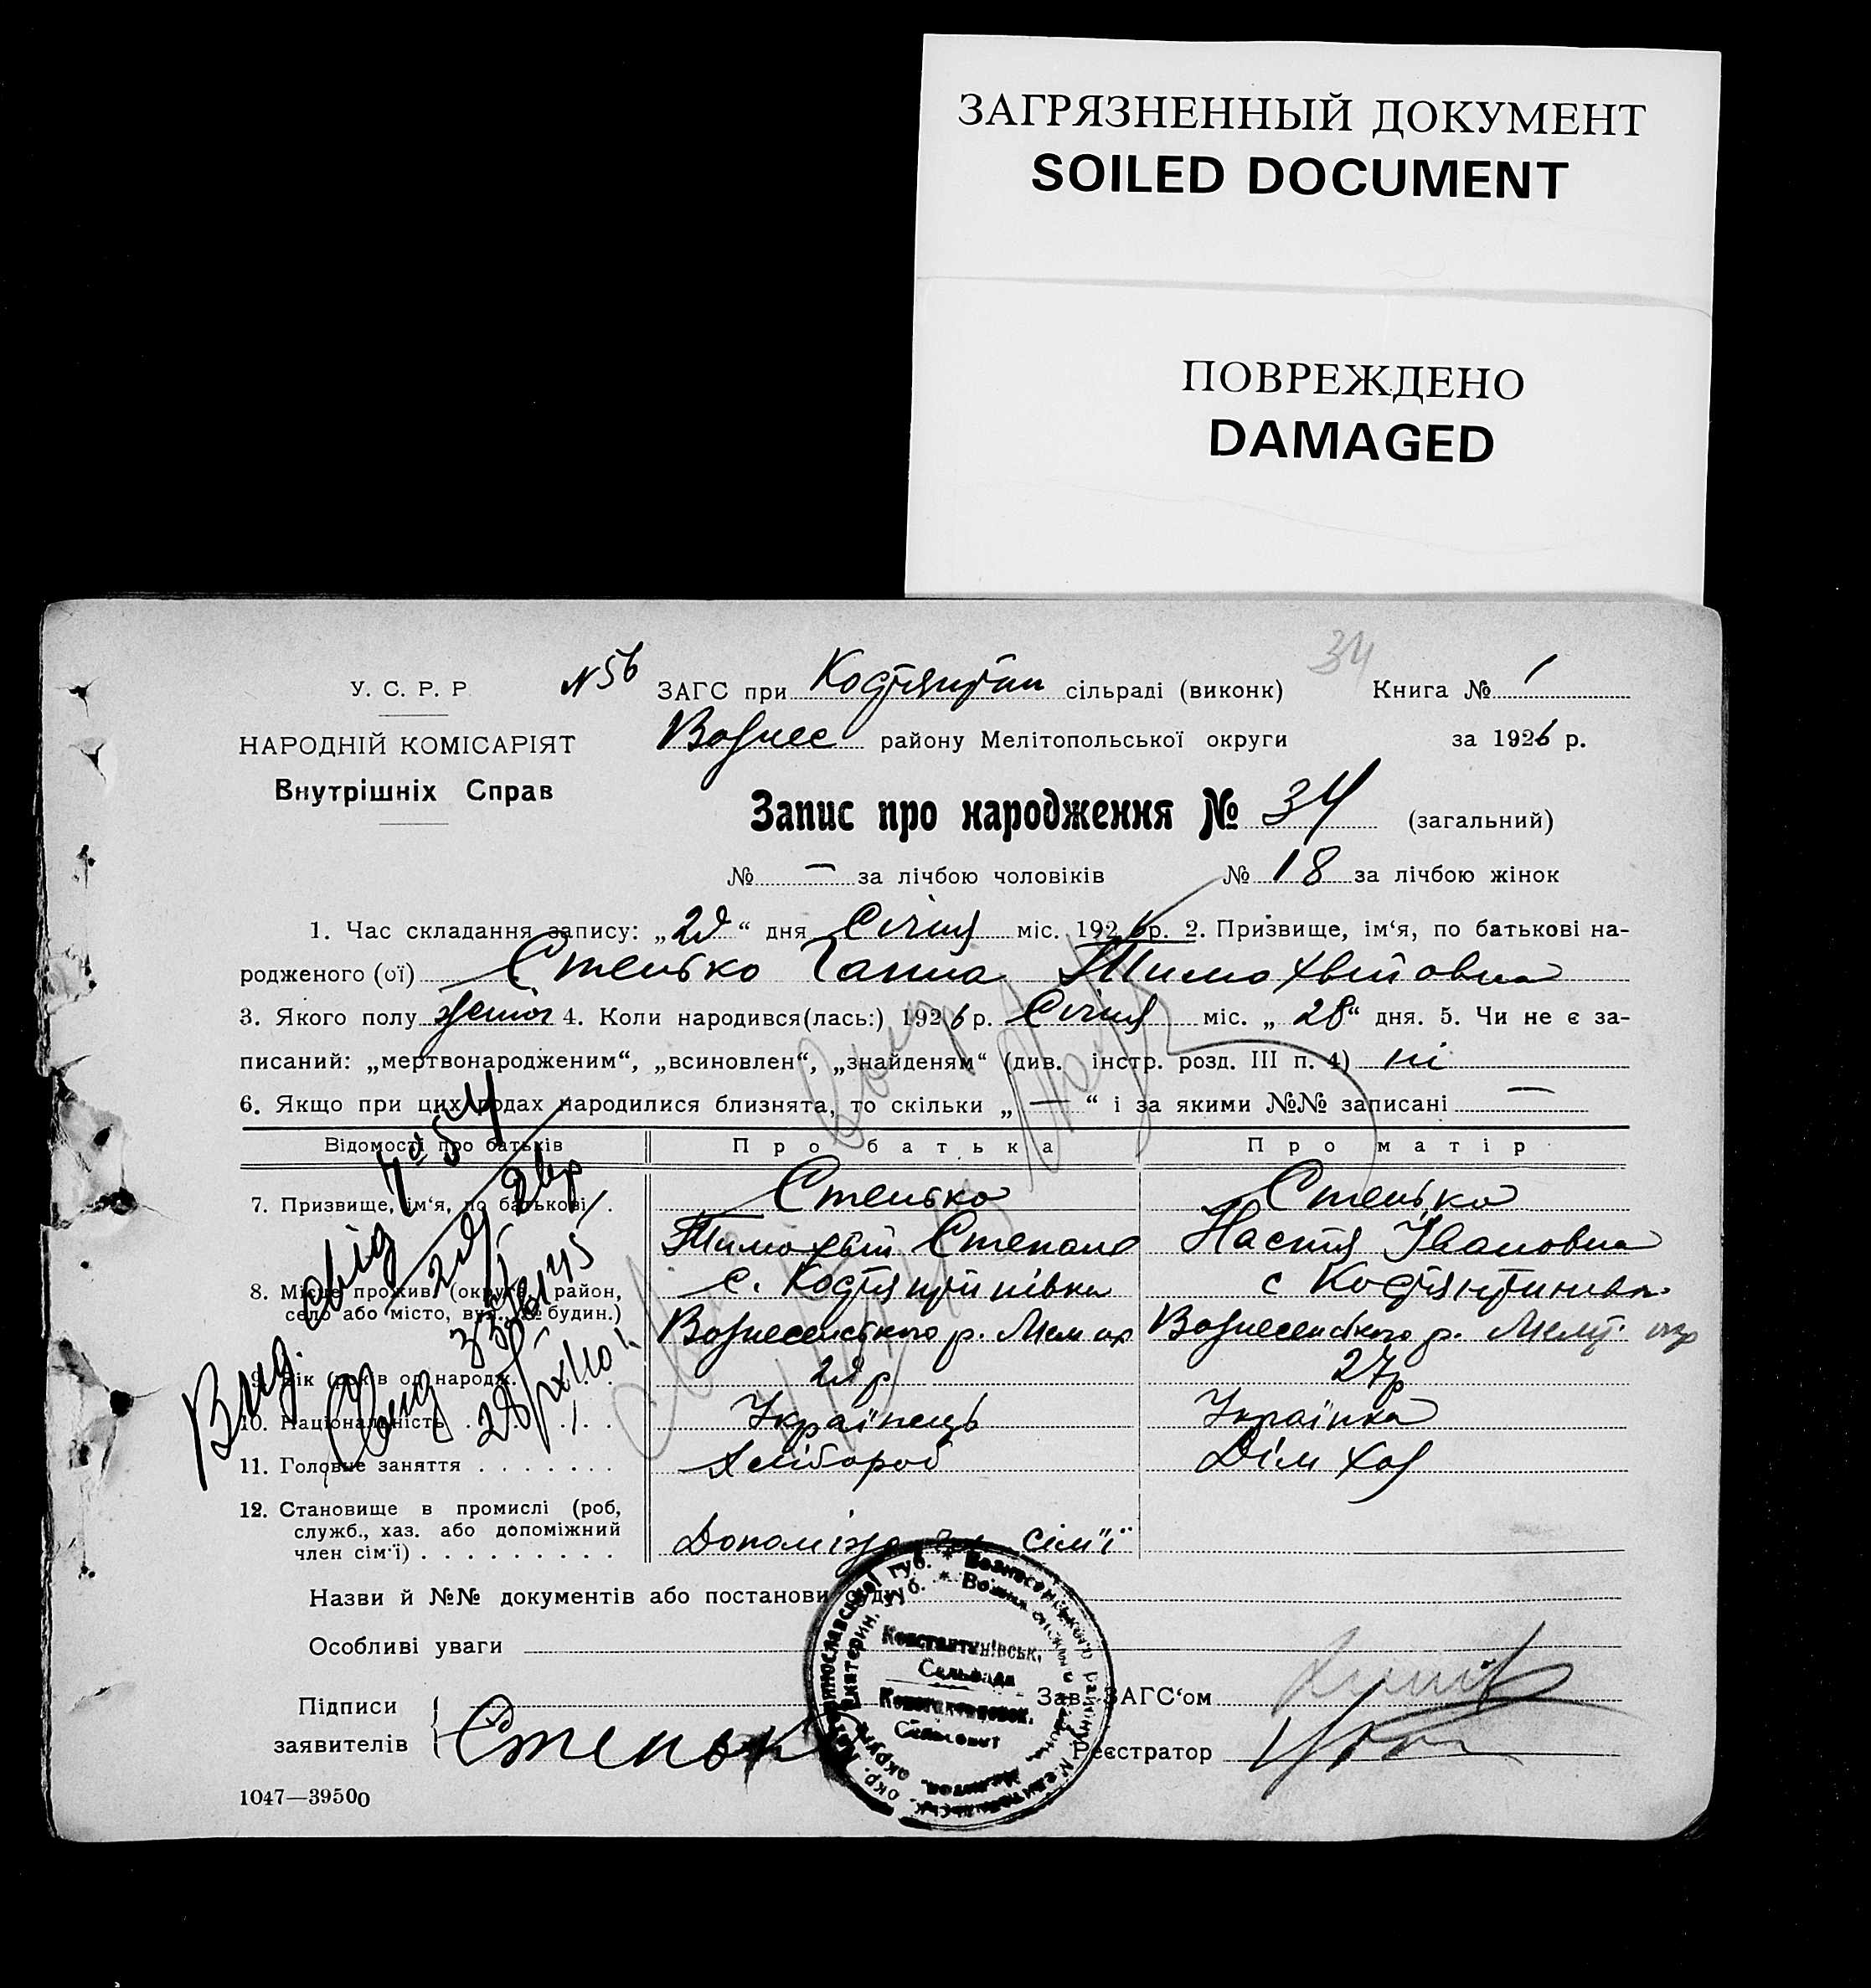 ЗАГРЯЗНЕННЫЙ ДОКУМЕНТ
SOILED DOCUMENT
ПОВРЕЖДЕНО
DAMAGED
34
У. С. Р. Р.
№ 56 ЗАГС при сільраді (виконк) Книга № 1
НАРОДНІЙ КОМІСАРІЯТ
Вознес району Мелітопольської округи за 1926 р.
Внутрішніх Справ
Запис про народження № 34 (загальний)
№ — за лічбою чоловіків № 18 за лічбою жінок
1. Час складання запису: „ “ дня Січня міс. 1926 р. 2. Призвище, ім‘я, по батькові на-
родженого (ої) Стенько Ганна Тимохвійовна
3. Якого полу жіноч 4. Коли народився(лась:) 1926 р. Січня міс. „ 28 “ дня. 5. Чи не є за-
писаний: „мертвонародженим“, „всиновлен“, „знайденям“ (див. інстр. розд. III п. 4) ні
6. Якщо при цих родах народилися близнята, то скільки „ — “ і за якими №№ записані —
Відомості про батьків Про батька Про матір
7. Призвище, ім‘я, по батькові . Стенько Стенько
Тимохвій Степанов Настя Івановна
8. Місце прожив. (округа, район, с. Костянтинівка с Костянтинівка
село або місто, вул. № будин.) Вознесенського р. Мел ок Вознесенського р. Меліт. окр
9. Вік (років од народж. 27р
10. Національність Українець Українка
11. Головне заняття Хлібороб Дім хоз
12. Становище в промислі (роб,
служб., хаз. або допоміжний
член сім‘ї) сім"ї
Назви й №№ документів або постанови суду
Особливі уваги
Підписи
заявителів Стенько
Зав. ЗАГС‘ом
Реєстратор
Константинівськ.
Сельрада
Константиновск.
Сельсовет
1047—39500